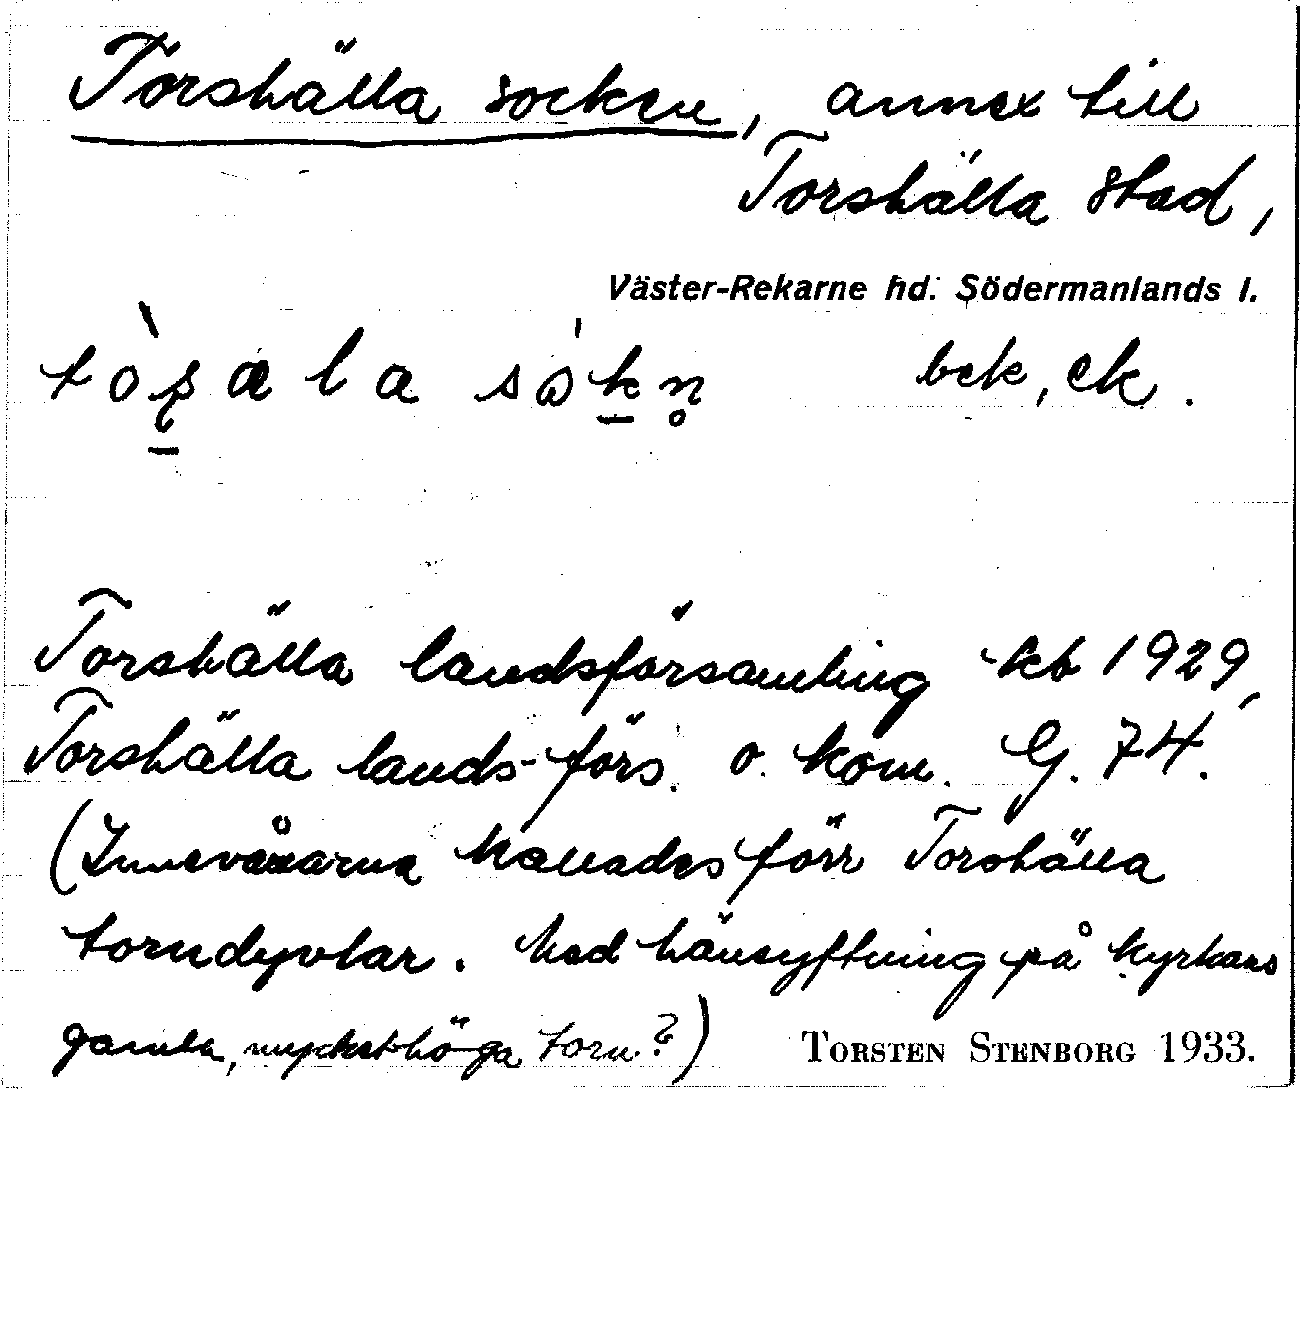 Torshälla socken, annex till
Torshälla stad,
Väster-Rekarne hd. Södermanlands l.
bek, ek.
Torshälla landsförsamling kb 1929,
Torshälla lands-förs. o. kom. G. 74.
(Innevånarna kallades förr Torshälla
torndyvlar. Med hänsyftning på kyrkans
gamla, mycket höga torn?)
TORSTEN STENBORG 1933.